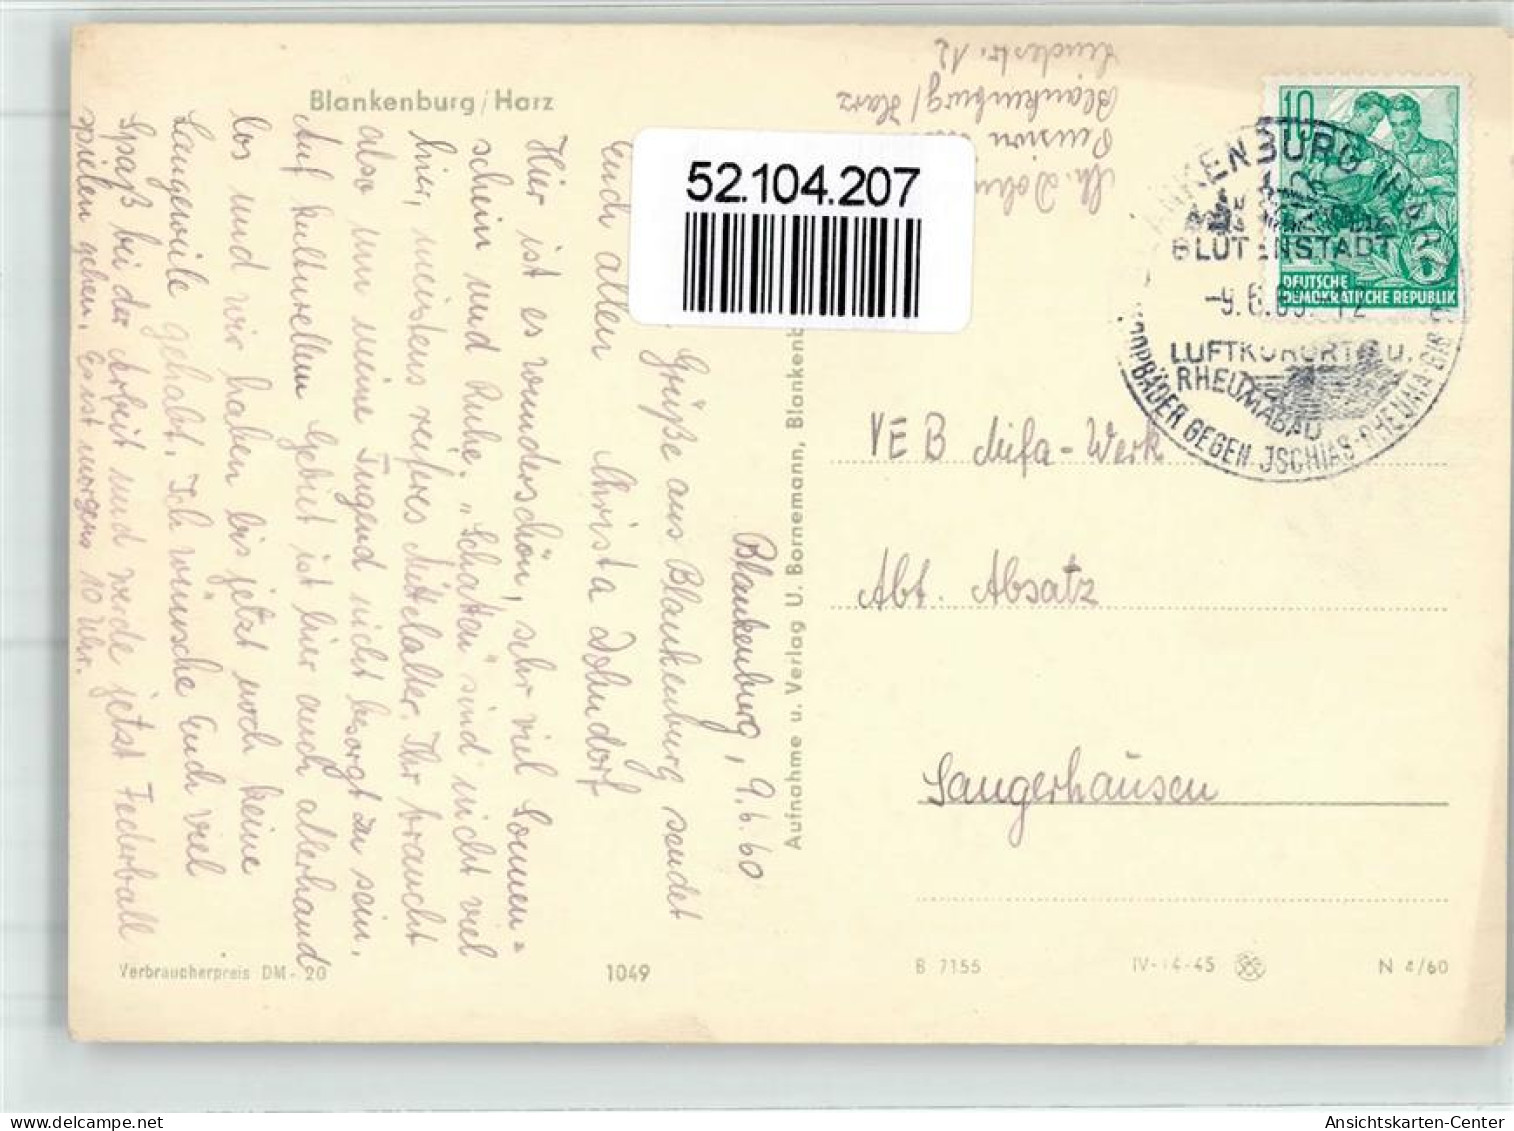 Blankenburg/Harz
Blankenburg, 9.6.60
Grüße aus Blankenburg sendet
Euch allen Christa Dohndorf
Hier ist es wunderschön, sehr viel Sonnen=
schein und Ruhe. „Schatten" sind nicht viel
hier, meistens reiferes Mittelalter. Ihr braucht
also um meine Tugend nicht besorgt zu sein.
Auf kulturellem Gebiet ist hier auch allerhand
los und wir haben bis jetzt noch keine
Langeweile gehabt. Ich wünsche Euch viel
Spaß bei der Arbeit und werde jetzt Federball
spielen gehen. Es ist morgens 10 Uhr.
Verbraucherpreis DM -.20
1049
Aufnahme u. Verlag U. Bornemann, Blankenb
52.104.207
Ch. Dohn
Pension
Blankenburg/Harz
Lindestr. 12
10
DEUTSCHE
DEMOKRATISCHE REPUBLIK
ANKENBURG (HAR
BLÜTENSTADT
-9.6.60.-12
LUFTKURORT U.
RHEUMABAD
GEGEN ISCHIAS-RHEUMA-GIC
VEB Mifa-Werk
Abt. Absatz
Sangerhausen
B 7155
IV-14-45
N 4/60
Ansichtskarten-Center